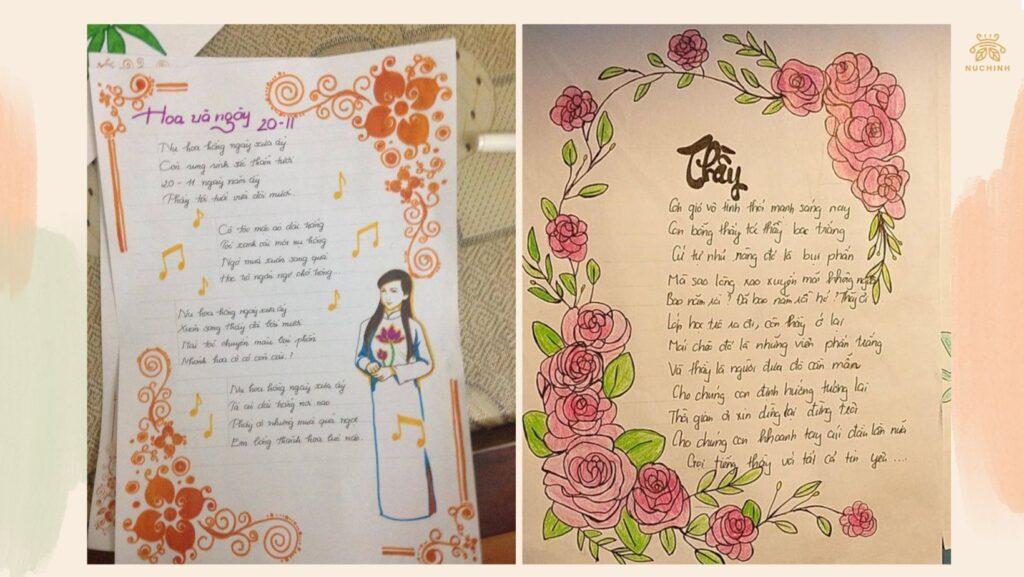 Hoa và ngày 20-11
Nụ hoa hồng ngày xưa ấy
Còn rung rinh sắc thắm tươi
20 - 11 ngày năm ấy
Thầy tôi tuổi vừa đôi mươi..
Cô tóc mác áo dài hồng
Tôi xanh cài môi nụ hồng
Ngỡ mùa xuân sang quá
Học trò ngẩn ngơ chờ hồng...
Nụ hoa hồng ngày xưa ấy
Xuân sang thầy đã bốn mươi
Mái tóc chuyển màu bụi phấn
Nhành hoa cô có còn cài..?
Nụ hoa hồng ngày xưa ấy
Tà áo dài hồng nơi nao
Thầy ơi nhưng mùa quả ngọt
Em bỗng thành hoa lúc nào..
Thầy
Cơn gió vô tình thổi mạnh sáng nay
Con bỗng thấy tóc thầy bạc trắng
Cứ tự nhủ rằng đó là bụi phấn
Mà sao lòng xao xuyến mãi không nguôi
Bao năm rồi ? Đã bao năm rồi hở ? Thầy ơi
Lớp học trò ra đi, còn thầy ở lại
Mái chèo đó là những viên phấn trắng
Và thầy là người đưa đò cần mẫn
Cho chúng con định hướng tương lai
Thời gian ơi xin dừng lại đừng trôi
Cho chúng con khoanh tay cúi đầu lần nữa
Gọi tiếng thầy với tất cả tin yêu ....
NUCHINH